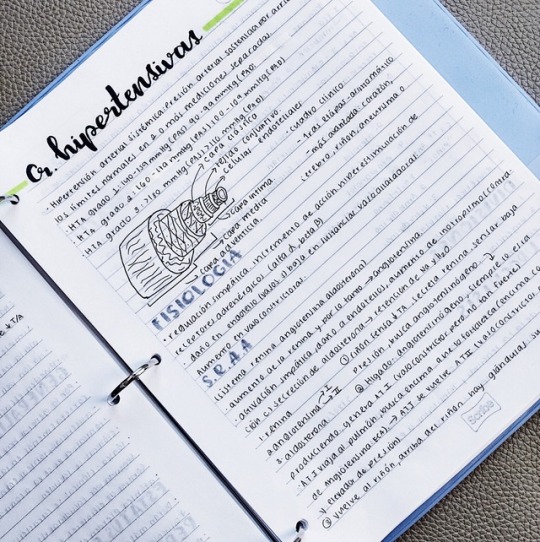 Cr. hipertensivas
· Hipertensión arterial sistémica: Presión arterial sostenida por arriba
los límites normales en 2 o más mediciones separadas.
· HTA grado 1: 140-159 mmHg (PAS) 90-99 mmHg (PAD)
· HTA grado 2: 160-179 mmHg (PAS) 100-109 mmHg (PAD)
· HTA grado 3: >180 mmHg (PAS) >110 mmHg (PAD)
capa elástica
tejido conjuntivo
células endoteliales
· cuadro clínico:
- 1ras etapas: asintomático
- más avanzada: corazón,
cerebro, riñón, aneurisma o
capa íntima
capa media
capa adventicia
FISIOLOGÍA
· regulación simpática: incremento de acción, hiperestimulación de
receptores adrenérgicos (alfa 1, beta 2)
daño en endotelio (vasos) baja en sustancias vasodilatadoras.
Aumento en vasoconstricción.
S.R.A.A
(sistema renina angiotensina aldosterona)
· aumento de la renina y por lo tanto → angiotensina
· activación simpática, daño a endotelio, aumento de inotropismo (contra
ción c) secreción de aldosterona → retención de Na + H2O
1 renina
2 angiotensina I II
3 aldosterona
① riñón sensa ↓TA. secreta renina. sensar baja
presión, busca angiotensinógeno
② Hígado: angiotensinógeno siempre lo secreta
produciendo genera AT I (vasoconstrictor pero no tan fuerte)
· AT I viaja al pulmón, busca encima a he so fosfatasa (encima co
de angiotensina ECA) → AT I se vuelve AT II (vasoconstrictor
y elevador de presión)
③ vuelve al riñón, arriba del riñón hay glándula su
Scribe